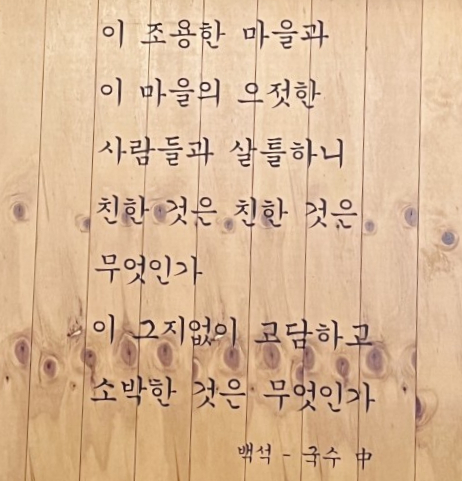 이 조용한 마을과
이 마을의 으젓한
사람들과 살틀하니
친한 것은 친한 것은
무엇인가
이 그지없이 고담하고
소박한 것은 무엇인가
백석 - 국수 中